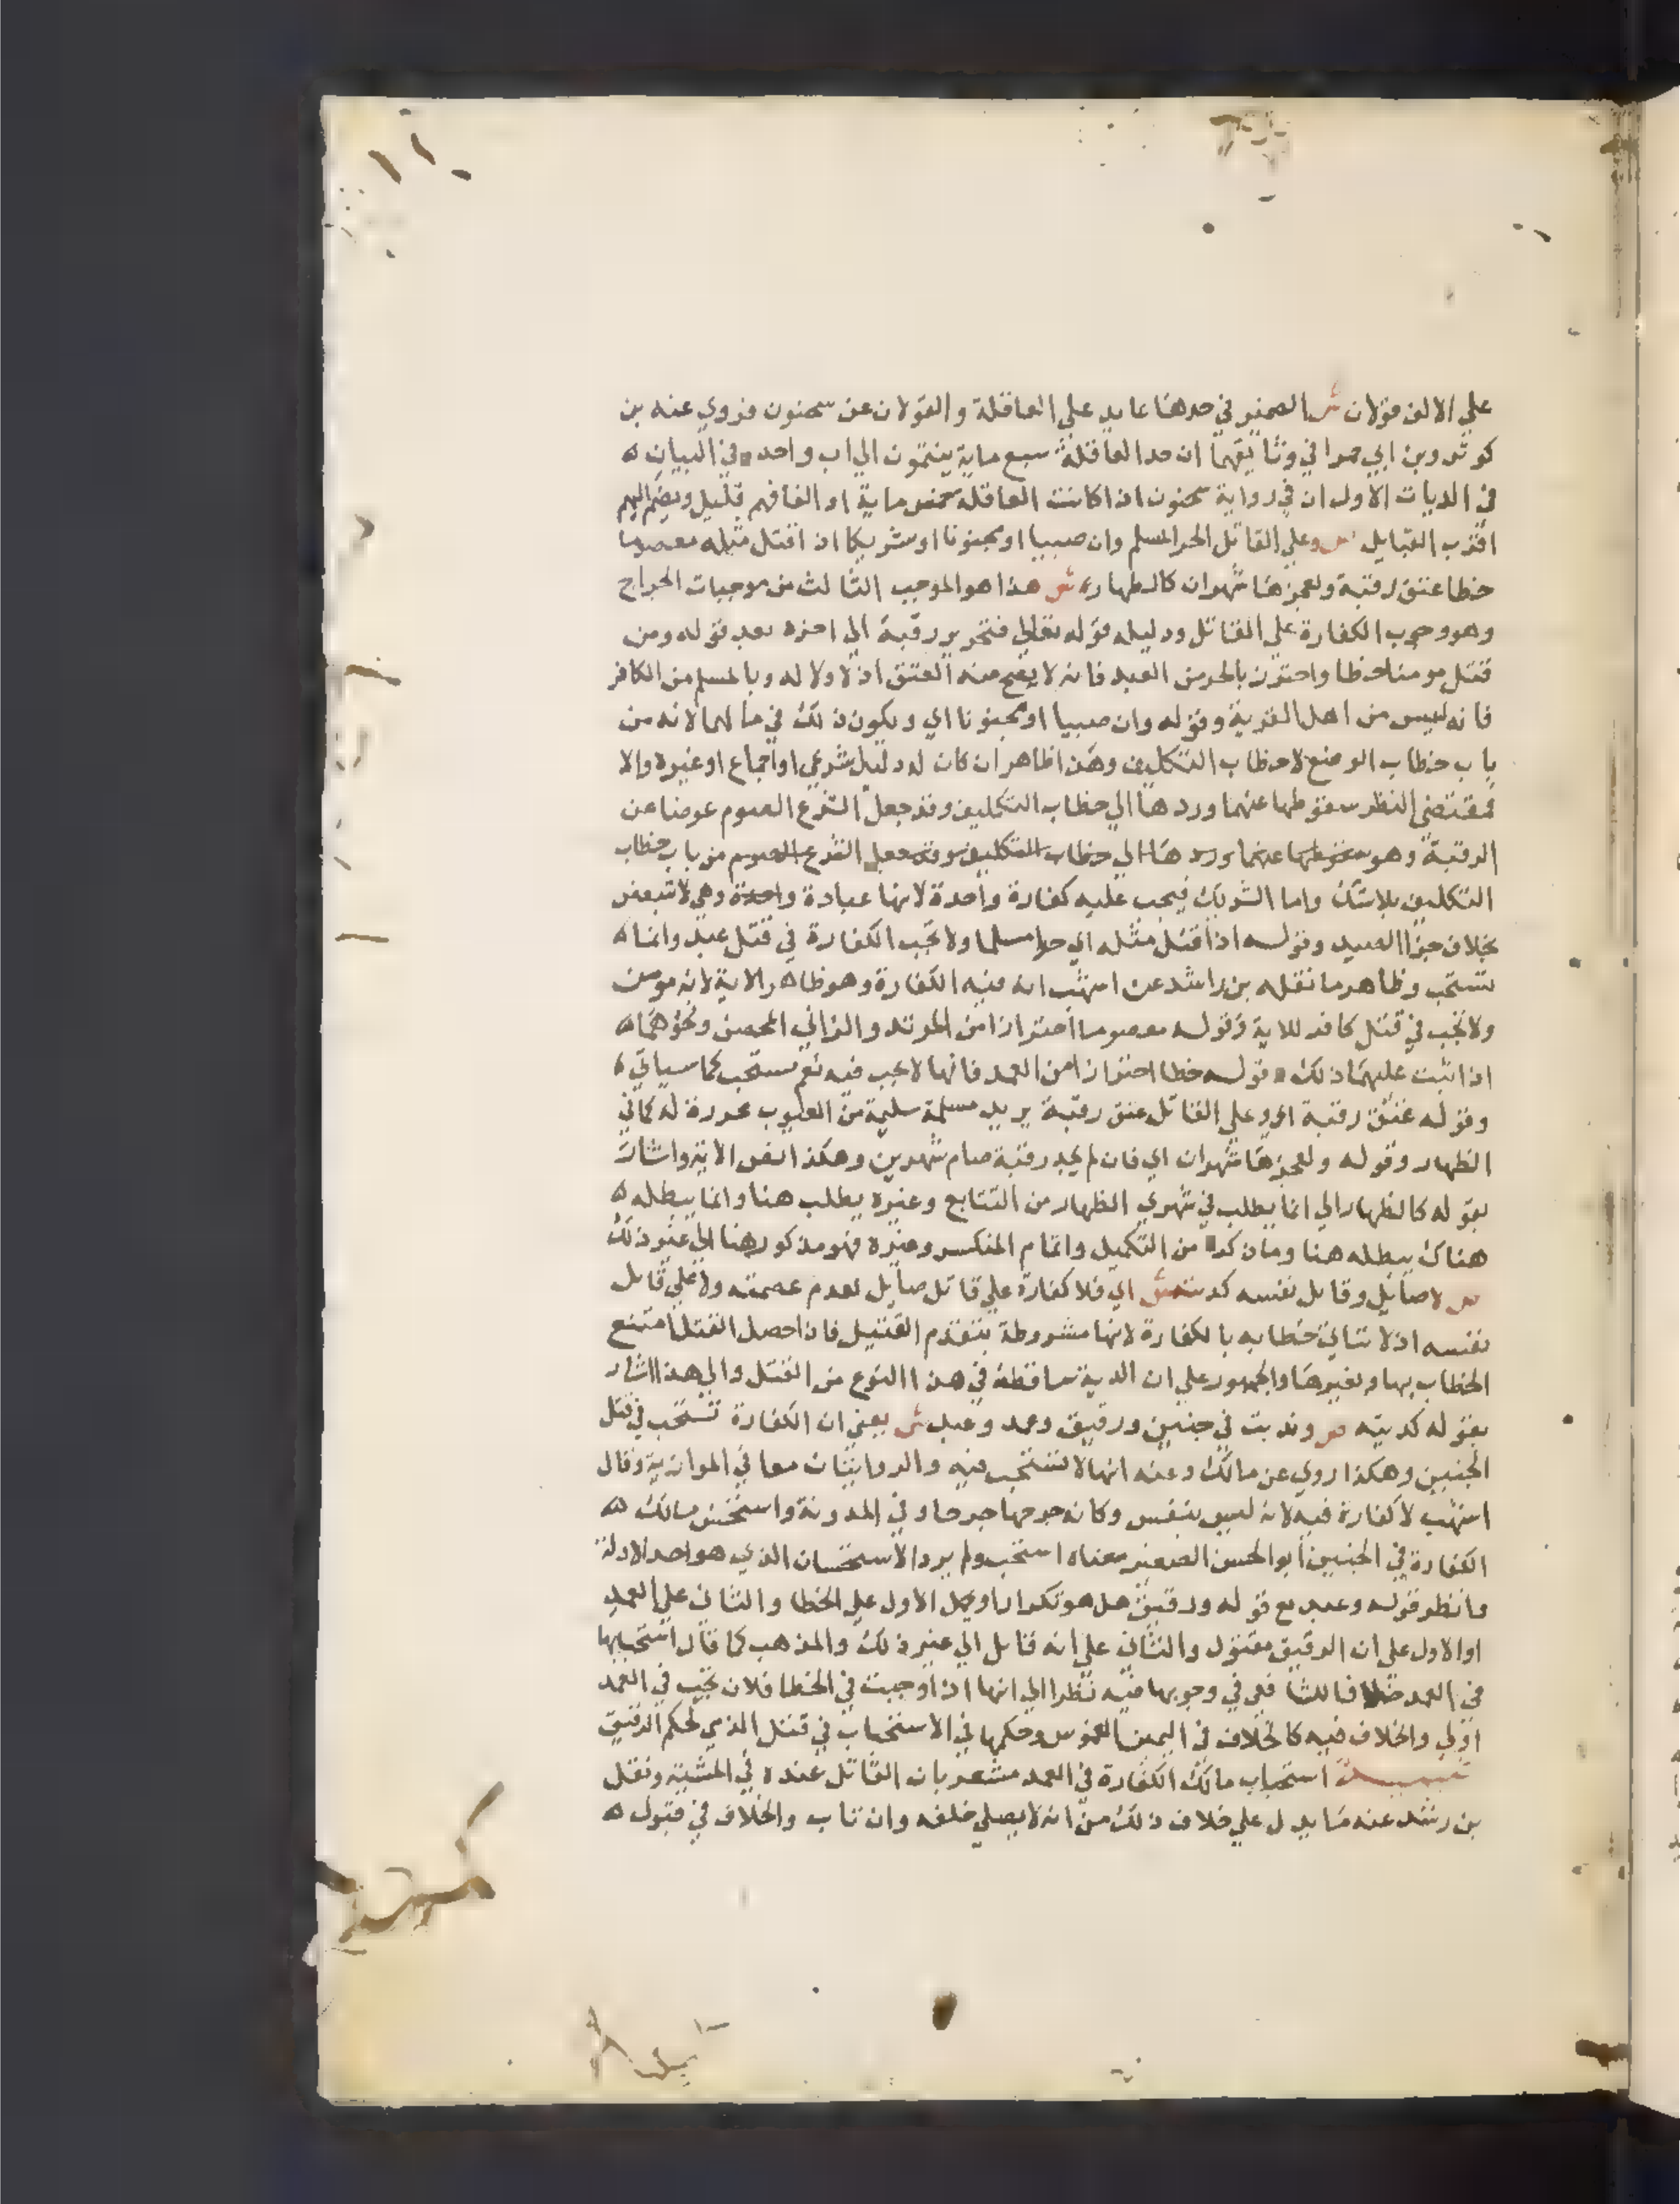 علي الالف قولان ش الضمير في حدها عايد علي العاقلة والقولان عن سحنون فروي عنه بن
كوثر وبن ابي حمرا في وثايقهما ان حد العاقلة سبع ماية ينتمون الي اب واحد في البيان
في الديات الاول ان في رواية سحنون اذا كانت العاقلة خمس ماية او الفا فهم قليل ويضم اليهم
اقرب القبايل ص وعلي القاتل الحر المسلم وان صبيا او مجنونا او شريكا اذا قتل مثله معصوما
خطا عتق رقبة ولعجزها شهران كالظهار ش هذا هو الموجب الثالث من موجبات الجراح
وهو وجوب الكفارة علي القاتل ودليله قوله تعالي فتحرير رقبة الي اخره بعد قوله ومن
قتل مومنا خطا واحترز بالحر من العبد فانه لا يصح منه العتق اذ لا ولا له وبالمسلم من الكافر
فانه ليس من اهل القربة وقوله وان صبيا او مجنونا اي ويكون ذلك في مالهما لانه من
باب خطاب الوضع لا خطاب التكليف وهذا ظاهر ان كان له دليل شرعي او اجماع او غيره والا
فمقتضي النظر سقوطها عنهما وردها الي خطاب التكليف وقد جعل الشرع الصوم عوضا عن
الرقبة وهو سقوطها عنهما وردها الي خطاب التكليف وقد جعل الشرع الصوم من باب خطاب
التكليف بلا شك واما الشريك فيجب عليه كفارة واحدة لانها عبادة واحدة وهي لا تتبعض
بخلاف جزا الصيد وقوله اذا قتل مثله اي حرا مسلما ولا تجب الكفارة في قتل عبد وانما
تستحب وظاهر ما نقله بن راشد عن اشهب ان فيه الكفارة وهو ظاهر الاية لانه مومن
ولا تجب في قتل كافر للاية وقوله معصوما احترازا من المرتد والزاني المحصن ونحوهما
اذا ثبت عليهما ذلك قوله خطا احترازا من العمد فانها لا تجب فيه نعم تستحب كما سياتي
وقوله عتق رقبة اي وعلي القاتل عتق رقبة يريد مسلمة سليمة من العيوب محررة له كما في
الظهار وقوله ولعجزها شهران اي فان لم يجد رقبة صام شهرين وهكذا نص الاية واشار
بقوله كالظهار الي انما يطلب في شهري الظهار من التتابع وغيره يطلب هنا وانما يبطله
هناك يبطله هنا وما ذكر من التكميل واتمام المنكسر وغيره فهو مذكور هنا الي غير ذلك
ص لا صايل وقاتل نفسه كديته ش اي فلا كفارة علي قاتل صايل لعدم عصمته ولا علي قاتل
نفسه اذ لا يتاتي خطابه بالكفارة لانها مشروطة بتقدم القتيل فاذا حصل القتل امتنع
الخطاب بها وبغيرها والجمهور علي ان الدية ساقطة في هذا النوع من القتل والي هذا اشار
بقوله كديته ص وندبت في جنين ورقيق وعمد وعبد ش يعني ان الكفارة تستحب في قتل
الجنين وهكذا روي عن مالك وعنه انها لا تستحب فيه والروايتان معا في الموازية وقال
اشهب لا كفارة فيه لانه ليس بنفس وكانه جرحها جرحا وفي المدونة واستحسن مالك
الكفارة في الجنين ابو الحسن الصغير معناه استحب ولم يرد الاستحسان الذي هو احد الادلة
وانظر قوله وعبد مع قوله ورقيق هل هو تكرار او يحمل الاول علي الخطا والثاني علي العمد
او الاول علي ان الرقيق مقتول والثاني علي انه قاتل الي غير ذلك والمذهب كما قال استحبابها
في العمد خلافا للشافعي في وجوبها فيه نظرا الي انها اذا وجبت في الخطا فلان تجب في العمد
اولي والخلاف فيه كالخلاف في اليمين الغموس وحكمها في الاستحباب في قتل الذمي لحكم الرقيق
تنبيه استحباب مالك الكفارة في العمد مشعر بان القاتل عنده في المشية ونقل
بن رشد عنه ما يدل علي خلاف ذلك من انه لا يصلي خلفه وان تاب والخلاف في قبول